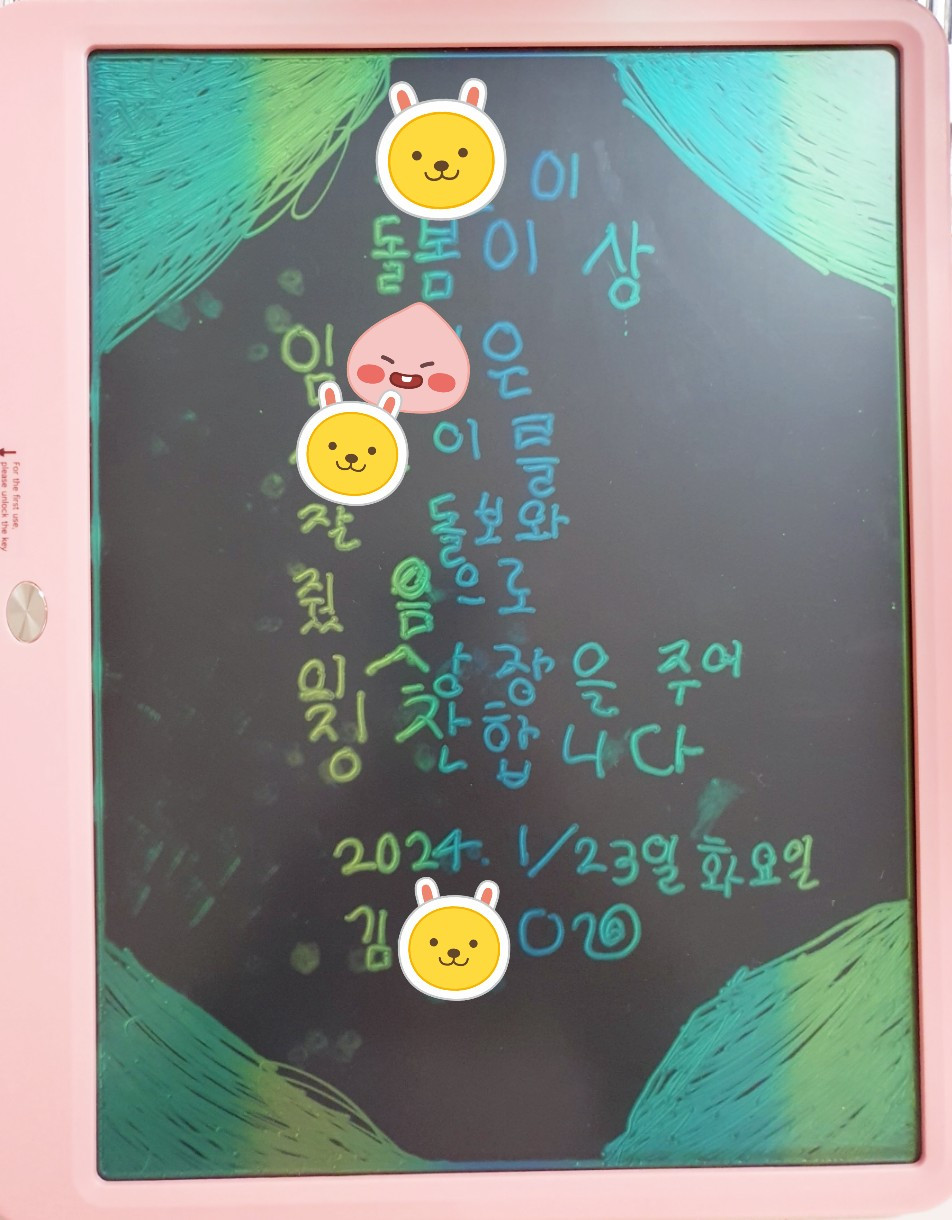 이
돌봄이 상
임 은
이를
잘 돌보와
줬음으로
이 상장을 주어
칭찬합니다
2024. 1/23일 화요일
김
For the first use,
please unlock the key